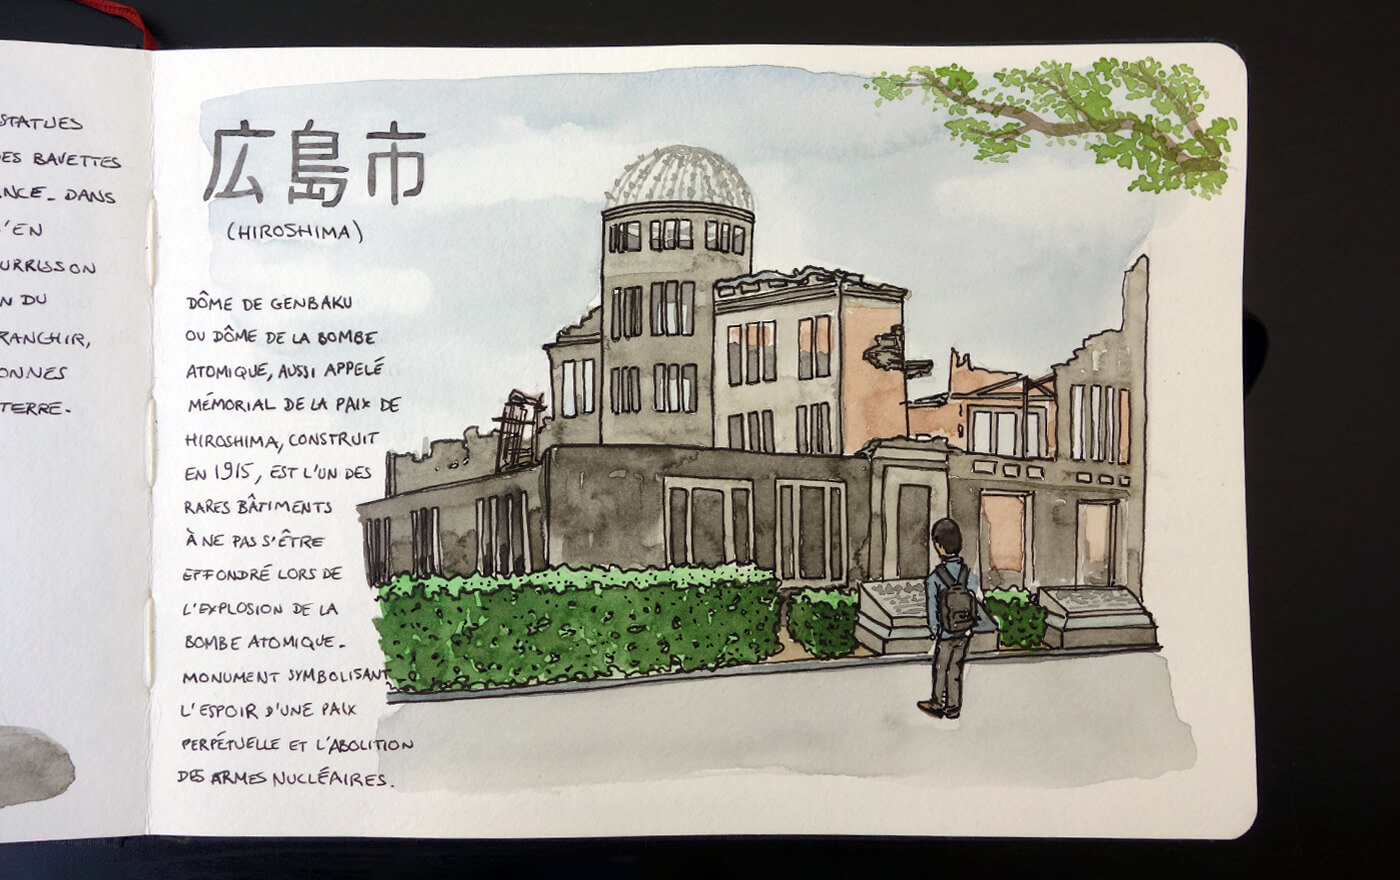 STATUES
DES BAVETTES
DANS
S'EN
N DU
RANCHIR,
ONNES
TERRE.
広島市
(HIROSHIMA)
DÔME DE GENBAKU
OU DÔME DE LA BOMBE
ATOMIQUE, AUSSI APPELÉ
MÉMORIAL DE LA PAIX DE
HIROSHIMA, CONSTRUIT
EN 1915, EST L'UN DES
RARES BÂTIMENTS
À NE PAS S'ÊTRE
EFFONDRÉ LORS DE
L'EXPLOSION DE LA
BOMBE ATOMIQUE.
MONUMENT SYMBOLISANT
L'ESPOIR D'UNE PAIX
PERPÉTUELLE ET L'ABOLITION
DES ARMES NUCLÉAIRES.